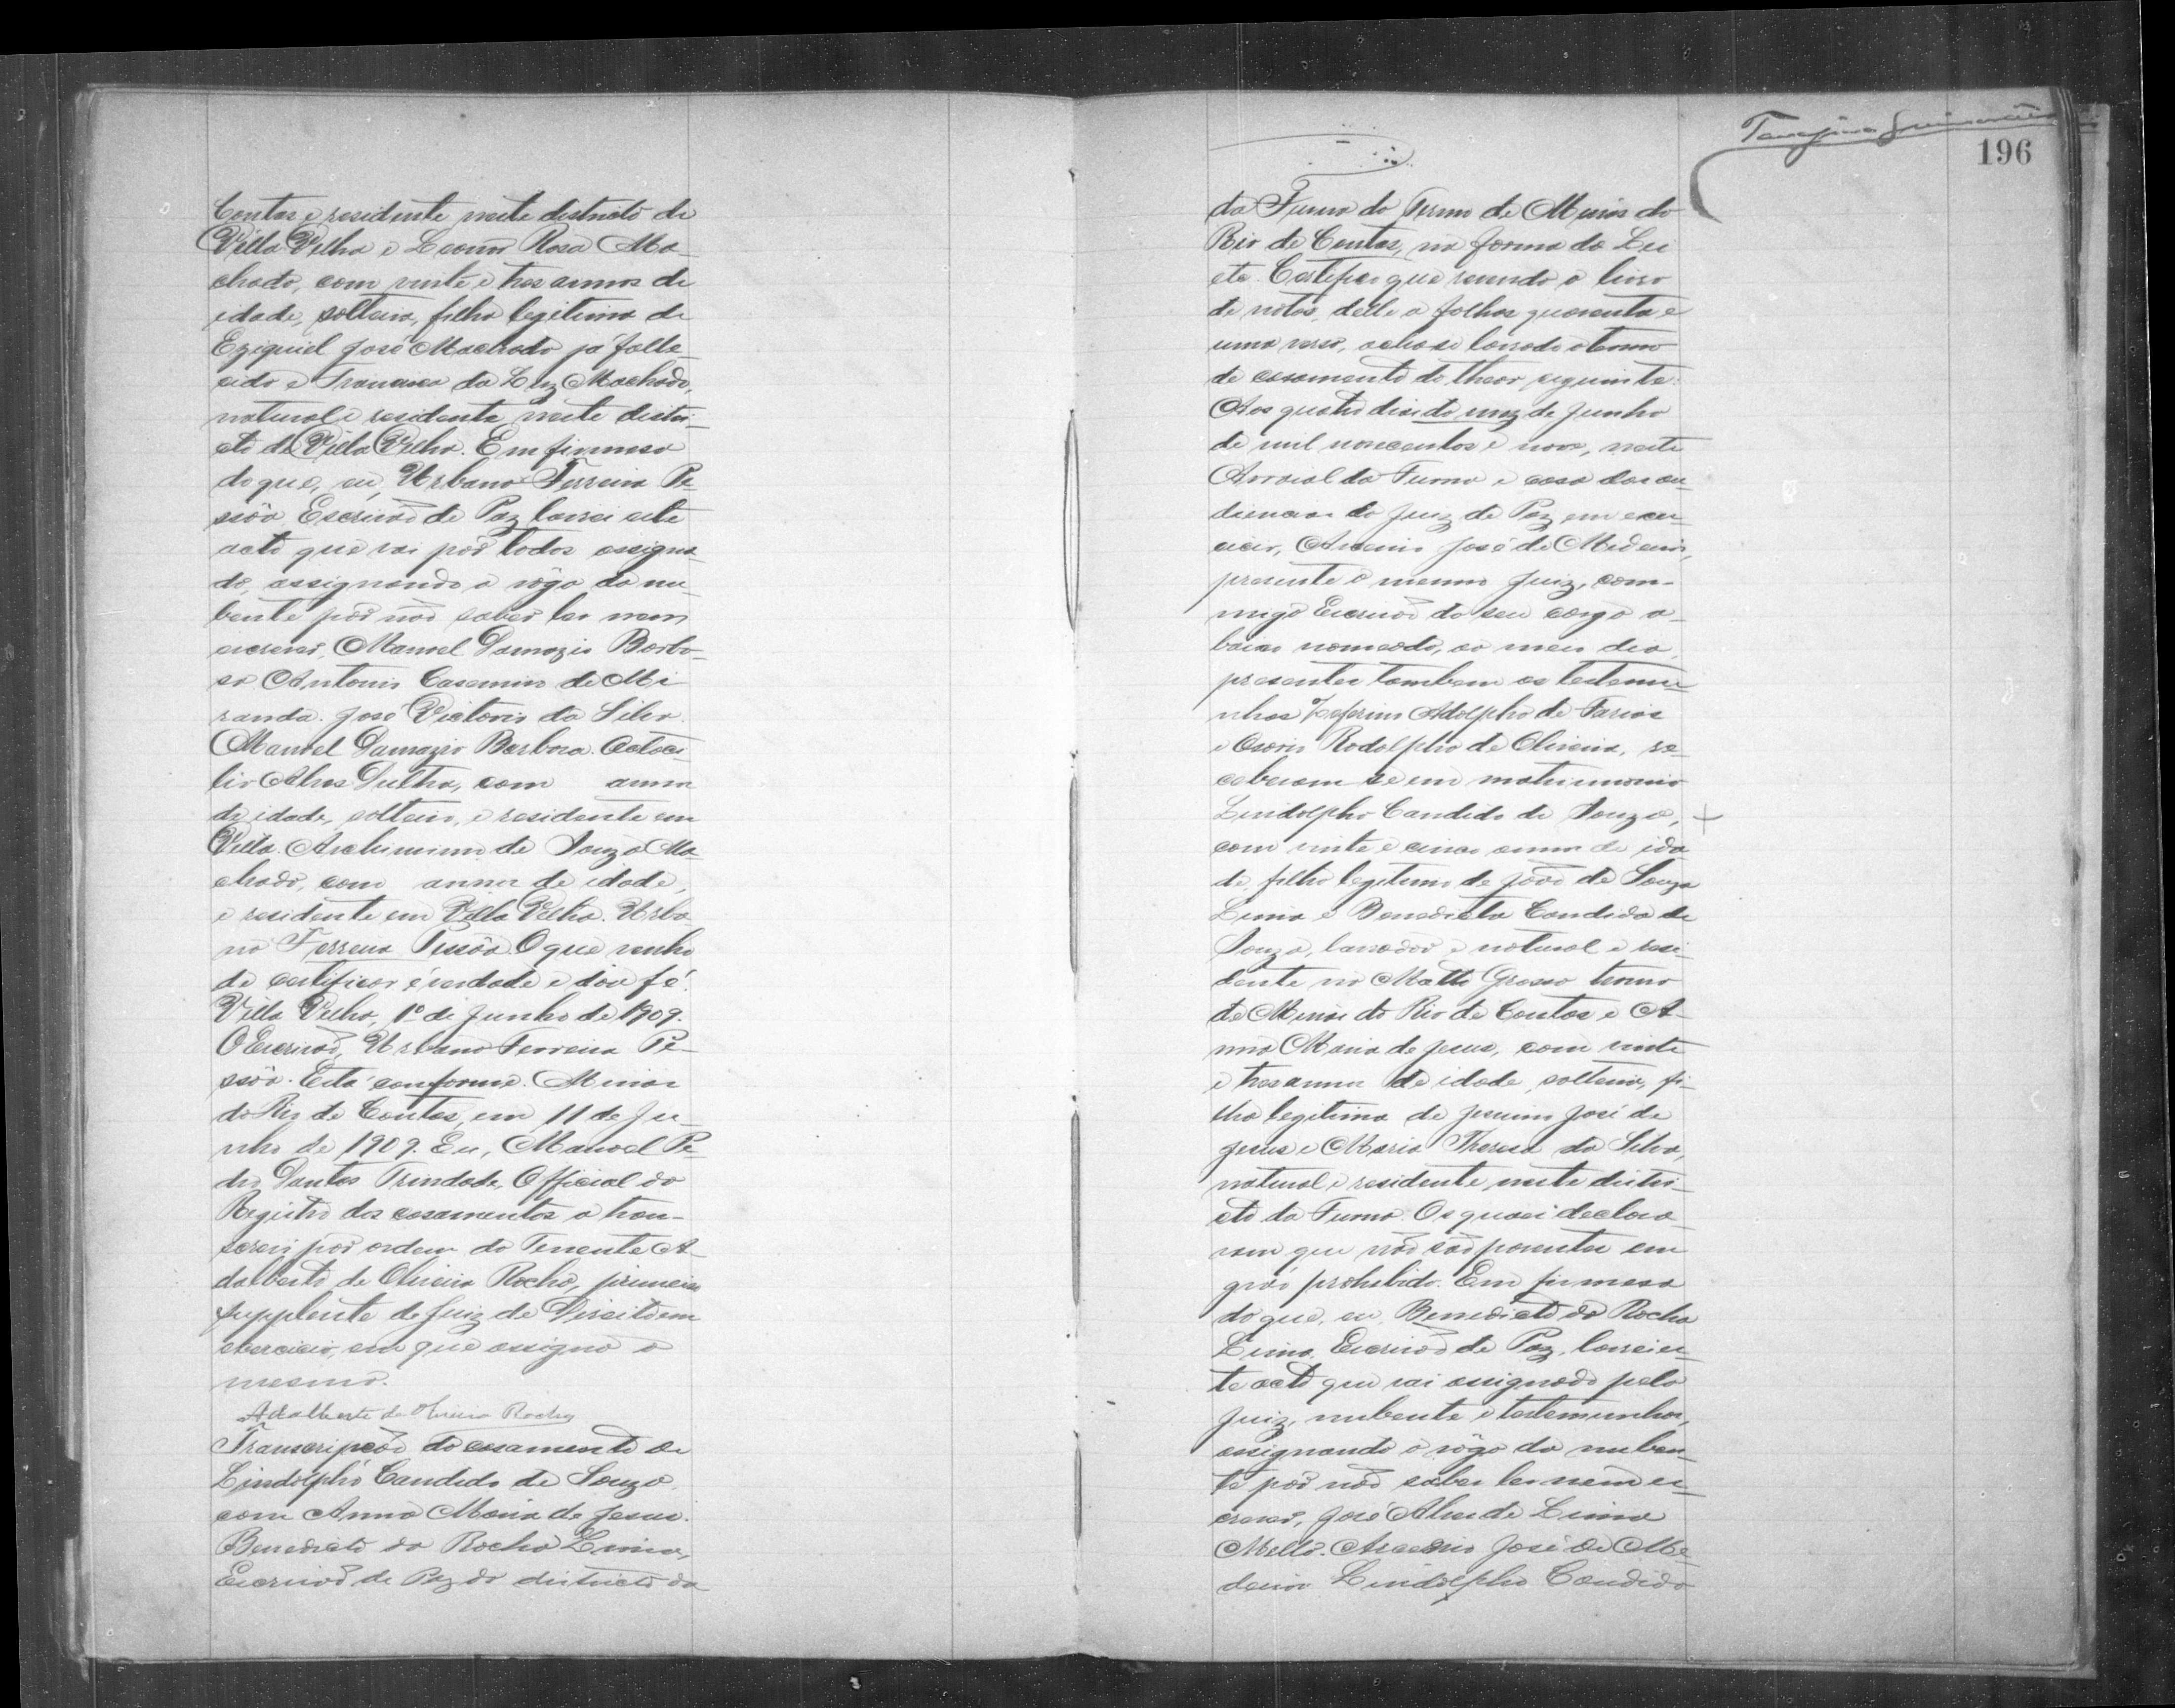 Contas e residente neste districto de
Villa Velha e Leonor Rosa Ma-
chado, com vinte e tres annos de
idade, solteira, filha legitima de
Ezequiel José Machado já falle-
cido e Francisca da Luz Machado,
natural e residente neste distri-
cto de Villa Velha. Em firmesa
do que, eu, Urbano Ferreira Pe-
ssôa Escrivão de Paz lavrei este
acto que vai pôr todos assigna-
do, assignando a rôgo da nu-
bente pôr não saber ler nem
escrever, Manoel Damazio Barbo-
sa Antonio Casemiro de Mi-
randa. José Victorio da Silva.
Manoel Damazio Barbosa.
Alves Dultra, com annos
de idade, solteiro, e residente em
Villa. Archimimo de Souza Ma-
chado, com annos de idade,
e residente em Villa Velha. Urba
no Ferreira Pessôa. O que venho
de certificar é verdade e dou fé.
Villa Velha, 1º de Junho de 1909.
O Escrivão, Urbano Ferreira Pe-
ssôa. Está conforme. Minas
do Rio de Contas, em 11 de Ju-
nho de 1909. Eu, Manoel Pe-
dro Dantas Trindade, Official do
Registro dos casamentos a tran-
screvi por ordem do Tenente A-
dalberto de Oliveira Rocha, primeiro
supplente de Juiz de Direito em
exercicio, em que assigna o
mesmo.
Adalberto de Oliveira Rocha
Transcripção do casamento de
Lindolpho Candido de Souza
com Anna Maria de Jesus.
Benedicto da Rocha Lima,
Escrivão de Paz do districto da
196
da Furna do Termo de Minas do
Rio de Contas, na forma da Lei
etc. Certifico que revendo o livro
de notas, delle a folhas quarenta e
uma verso, acha-se lavrado o termo
de casamento do theor seguinte:
Aos quatro dias do mez de Junho
de mil novecentos e nove, neste
Arraial da Furna e casa das au-
diencias do Juiz de Paz em exer-
cicio, Arsenio José de Medeiros,
presente o mesmo Juiz, com-
migo Escrivão do seu cargo a-
baixo nomeado, ao meio dia,
presentes tambem as testemu-
nhas Zeferino Adolpho de Farias
e Osorio Rodolpho de Oliveira, re-
ceberam se em matrimonio
Lindolpho Candido de Souza, +
com vinte e cinco annos de ida
de, filho legitimo de João de Souza
Lima e Benedicta Candida de
Souza, lavrador e natural e resi-
dente no Matto Grosso termo
de Minas do Rio de Contas e A-
nna Maria de Jesus, com vinte
e tres annos de idade, solteira, fi-
lha legitima de José de
Jesus e Maria Thereza da Silva,
natural e residente neste distri-
cto da Furna. Os quaes declara-
ram que não são parentes em
gráo prohibido. Em firmesa
do que, eu, Benedicto da Rocha
Lima, Escrivão de Paz, lavrei es-
te acto que vai assignado pelo
Juiz, nubente e testemunhas,
assignando a rôgo da nuben-
te pôr não saber ler nem es-
crever, José Alves de Lima
Mello. Arsenio José de Me-
deiros Lindolpho Candido